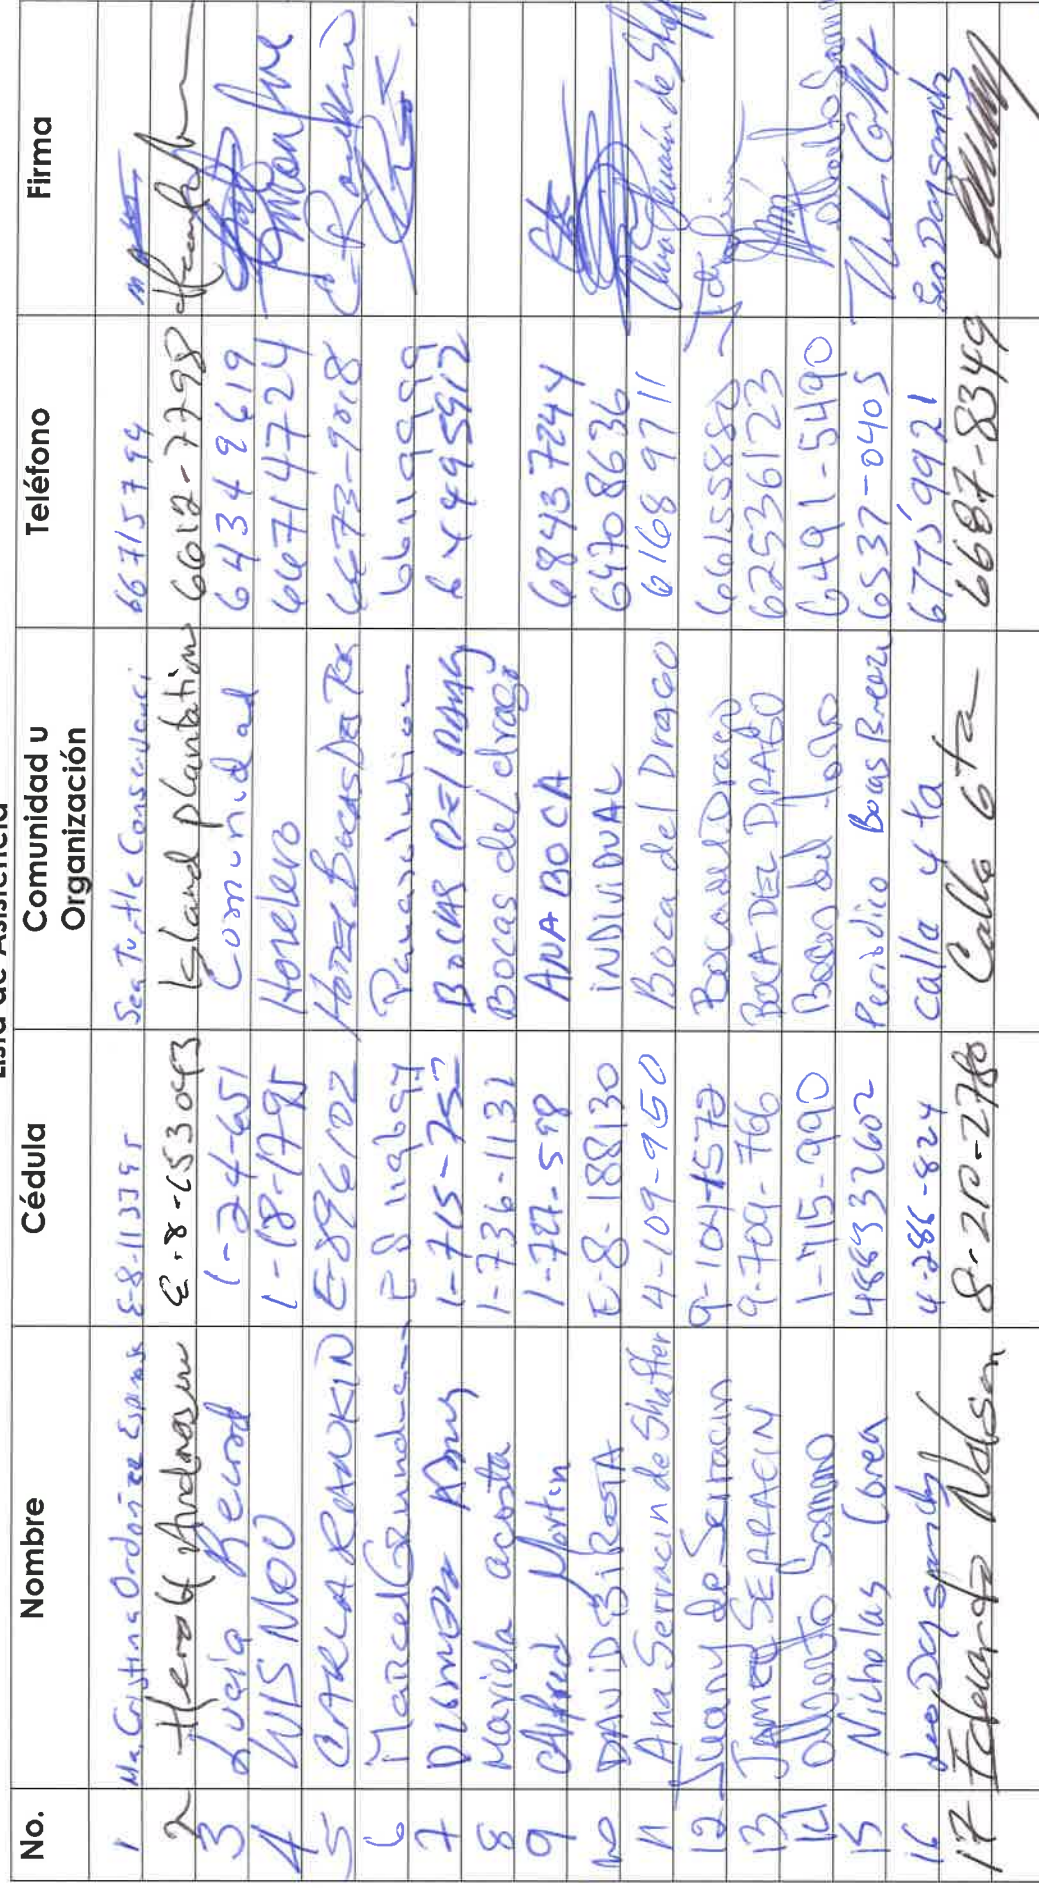 Lista de Asistencia
No. Nombre Cédula Comunidad u Organización Teléfono Firma
1 Ma. Cristina Ordoñez Espina E-8-113395 Sea Turtle Conservanci 66715794
2 E-8-153043 Island plantation 6612-7798
3 Lucía 1-24-651 Comunidad 64349619
4 LUIS MOU 1-18-1795 Hotelero 66714724
5 CARLA RANKIN E-896102 Hotel Bocas Del Toro 6673-9018
6 Marcel 66119999
7 1-715-752 BOCAS DEL DRAGO 64495912
8 Mariela acosta 1-736-1132 Bocas del drago
9 Alfred Martin 1-727-598 ANA BOCA 68437244
10 DAVID BiROTA E-8-188130 iNDIVIDUAL 64708636
11 Ana Serracin de Shaffer 4-109-950 Boca del Drago 61689711 Ana Serracín de Shaff
12 de Serracin 9-104-1572 Boca del Drago 66155880
13 JAMES SERRACIN 9-709-766 BOCA DEL DRAGO 62536123
14 Alberto 1-715-990 Bocas del Toro 6491-5490
15 Nicholas Corea 488332602 Periodico Bocas Breeze 6537-0405
16 4-286-824 calla 4 ta 67759921
17 Eduardo Nelson 8-2P-2780 Calla 6 ta 6687-8349